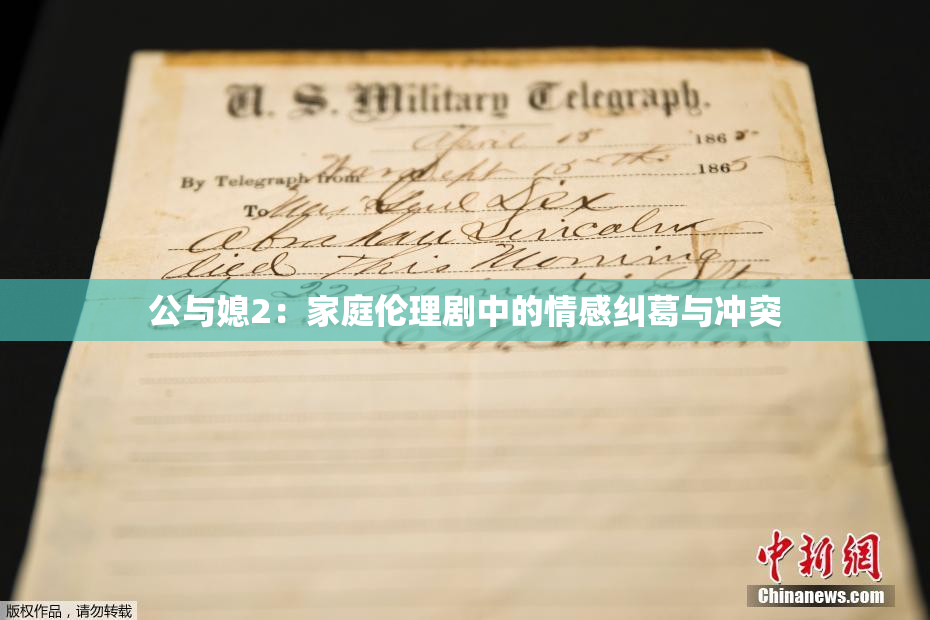 U. S. Military Telegraph.
April 15 1865
By Telegraph from War Dept 15th 1865
To Maj Genl Dix
Abraham Lincoln
died This Morning
at 22 minutes after
公与媳2：家庭伦理剧中的情感纠葛与冲突
E. M. Stanton
中新网
Chinanews.com
版权作品，请勿转载